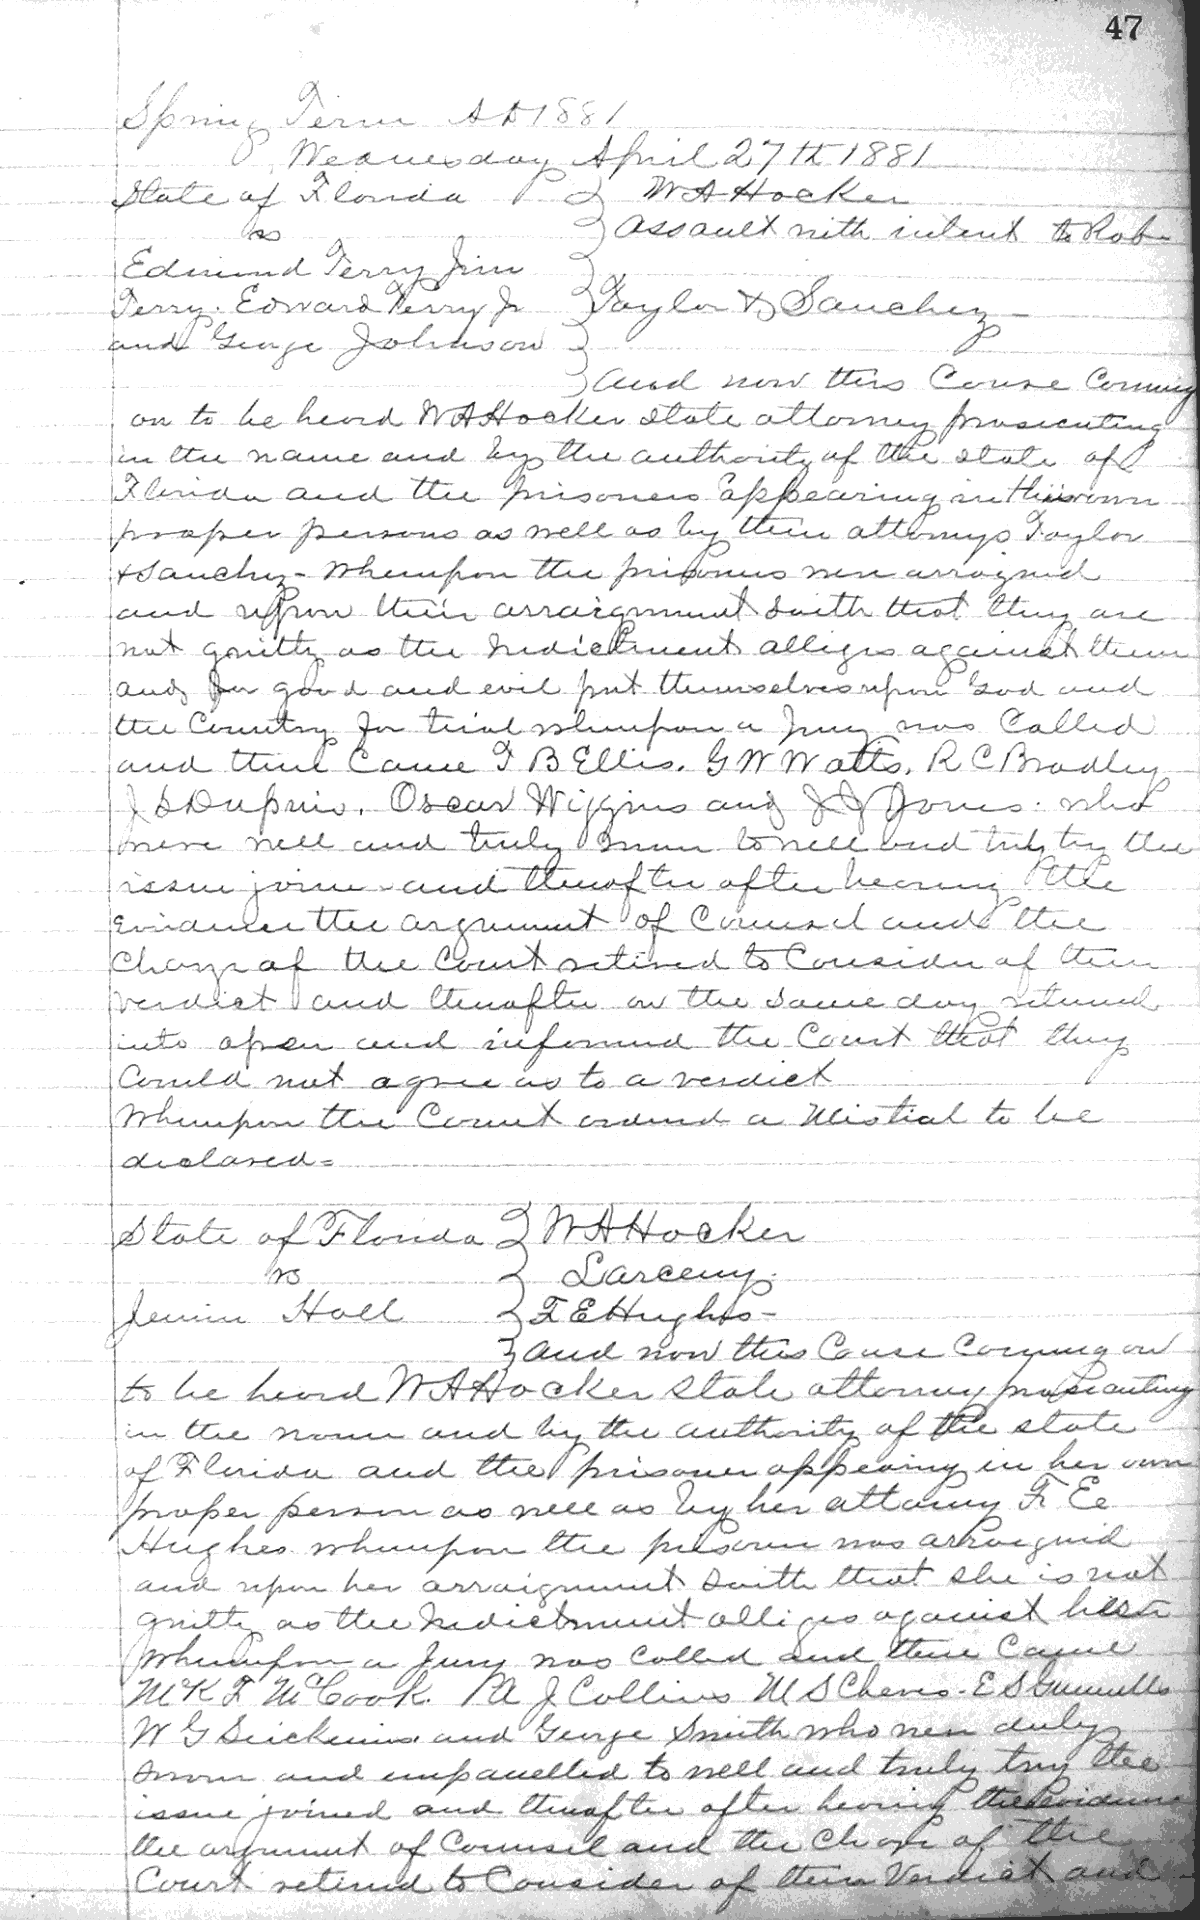 47
Spring Term AD 1881
Wednesday April 27th 1881
State of Florida } W A Hocker
vs } assault with intent to Rob-
Edmund Terry Jim
Terry. Edward Terry Jr } Taylor & Sanchez-
and George Johnson
} and now this Cause Coming
on to be heard W A Hocker state attorney prosecuting
in the name and by the authority of the state of
Florida and the prisoners appearing in their own
proper persons as well as by their attornys Taylor
& Sanchez- Whereupon the prisoners were arraigned
and upon their arraignment saith that they are
not guilty as the Indictment alliges against them
and for good and evil put themselves upon God and
the Country for trial whereupon a Jury was Called
and there Came T B Ellis. G W Watts, R C Bradley
J S Dupuis. Oscar Wiggins and J J Jones. who
were well and truly sworn to well and truly try the
issue joine and thereafter after hearing the
Evidence the argument of Counsel and the
Charge of the Court retired to Consider of their
verdict and thereafter on the same day returned
into open and informed the Court that they
Could not agree as to a verdict
Whereupon the Court ordered a Mistrial to be
declared=
State of Florida } W A Hocker
vs } Larceny.
Hall } F E Hughes-
} and now this Cause Coming on
to be heard W A Hocker State attorney prosecuting
in the name and by the authority of the state
of Florida and the prisoner appearing in her own
proper person as well as by her attorney F. E
Hughes whereupon the prisoner was arraigned
and upon her arraignment saith that she is not
guilty as the Indictment alliges against her
Whereupon a Jury was called and there Came
McK F McCook. J Collins M S Cheves. E S
W G and George Smith who were duly
sworn and empanelled to well and truly try the
issue joined and thereafter after hearing the Evidence
the argument of Counsel and the Charge of the
Court retired to Consider of their Verdict and